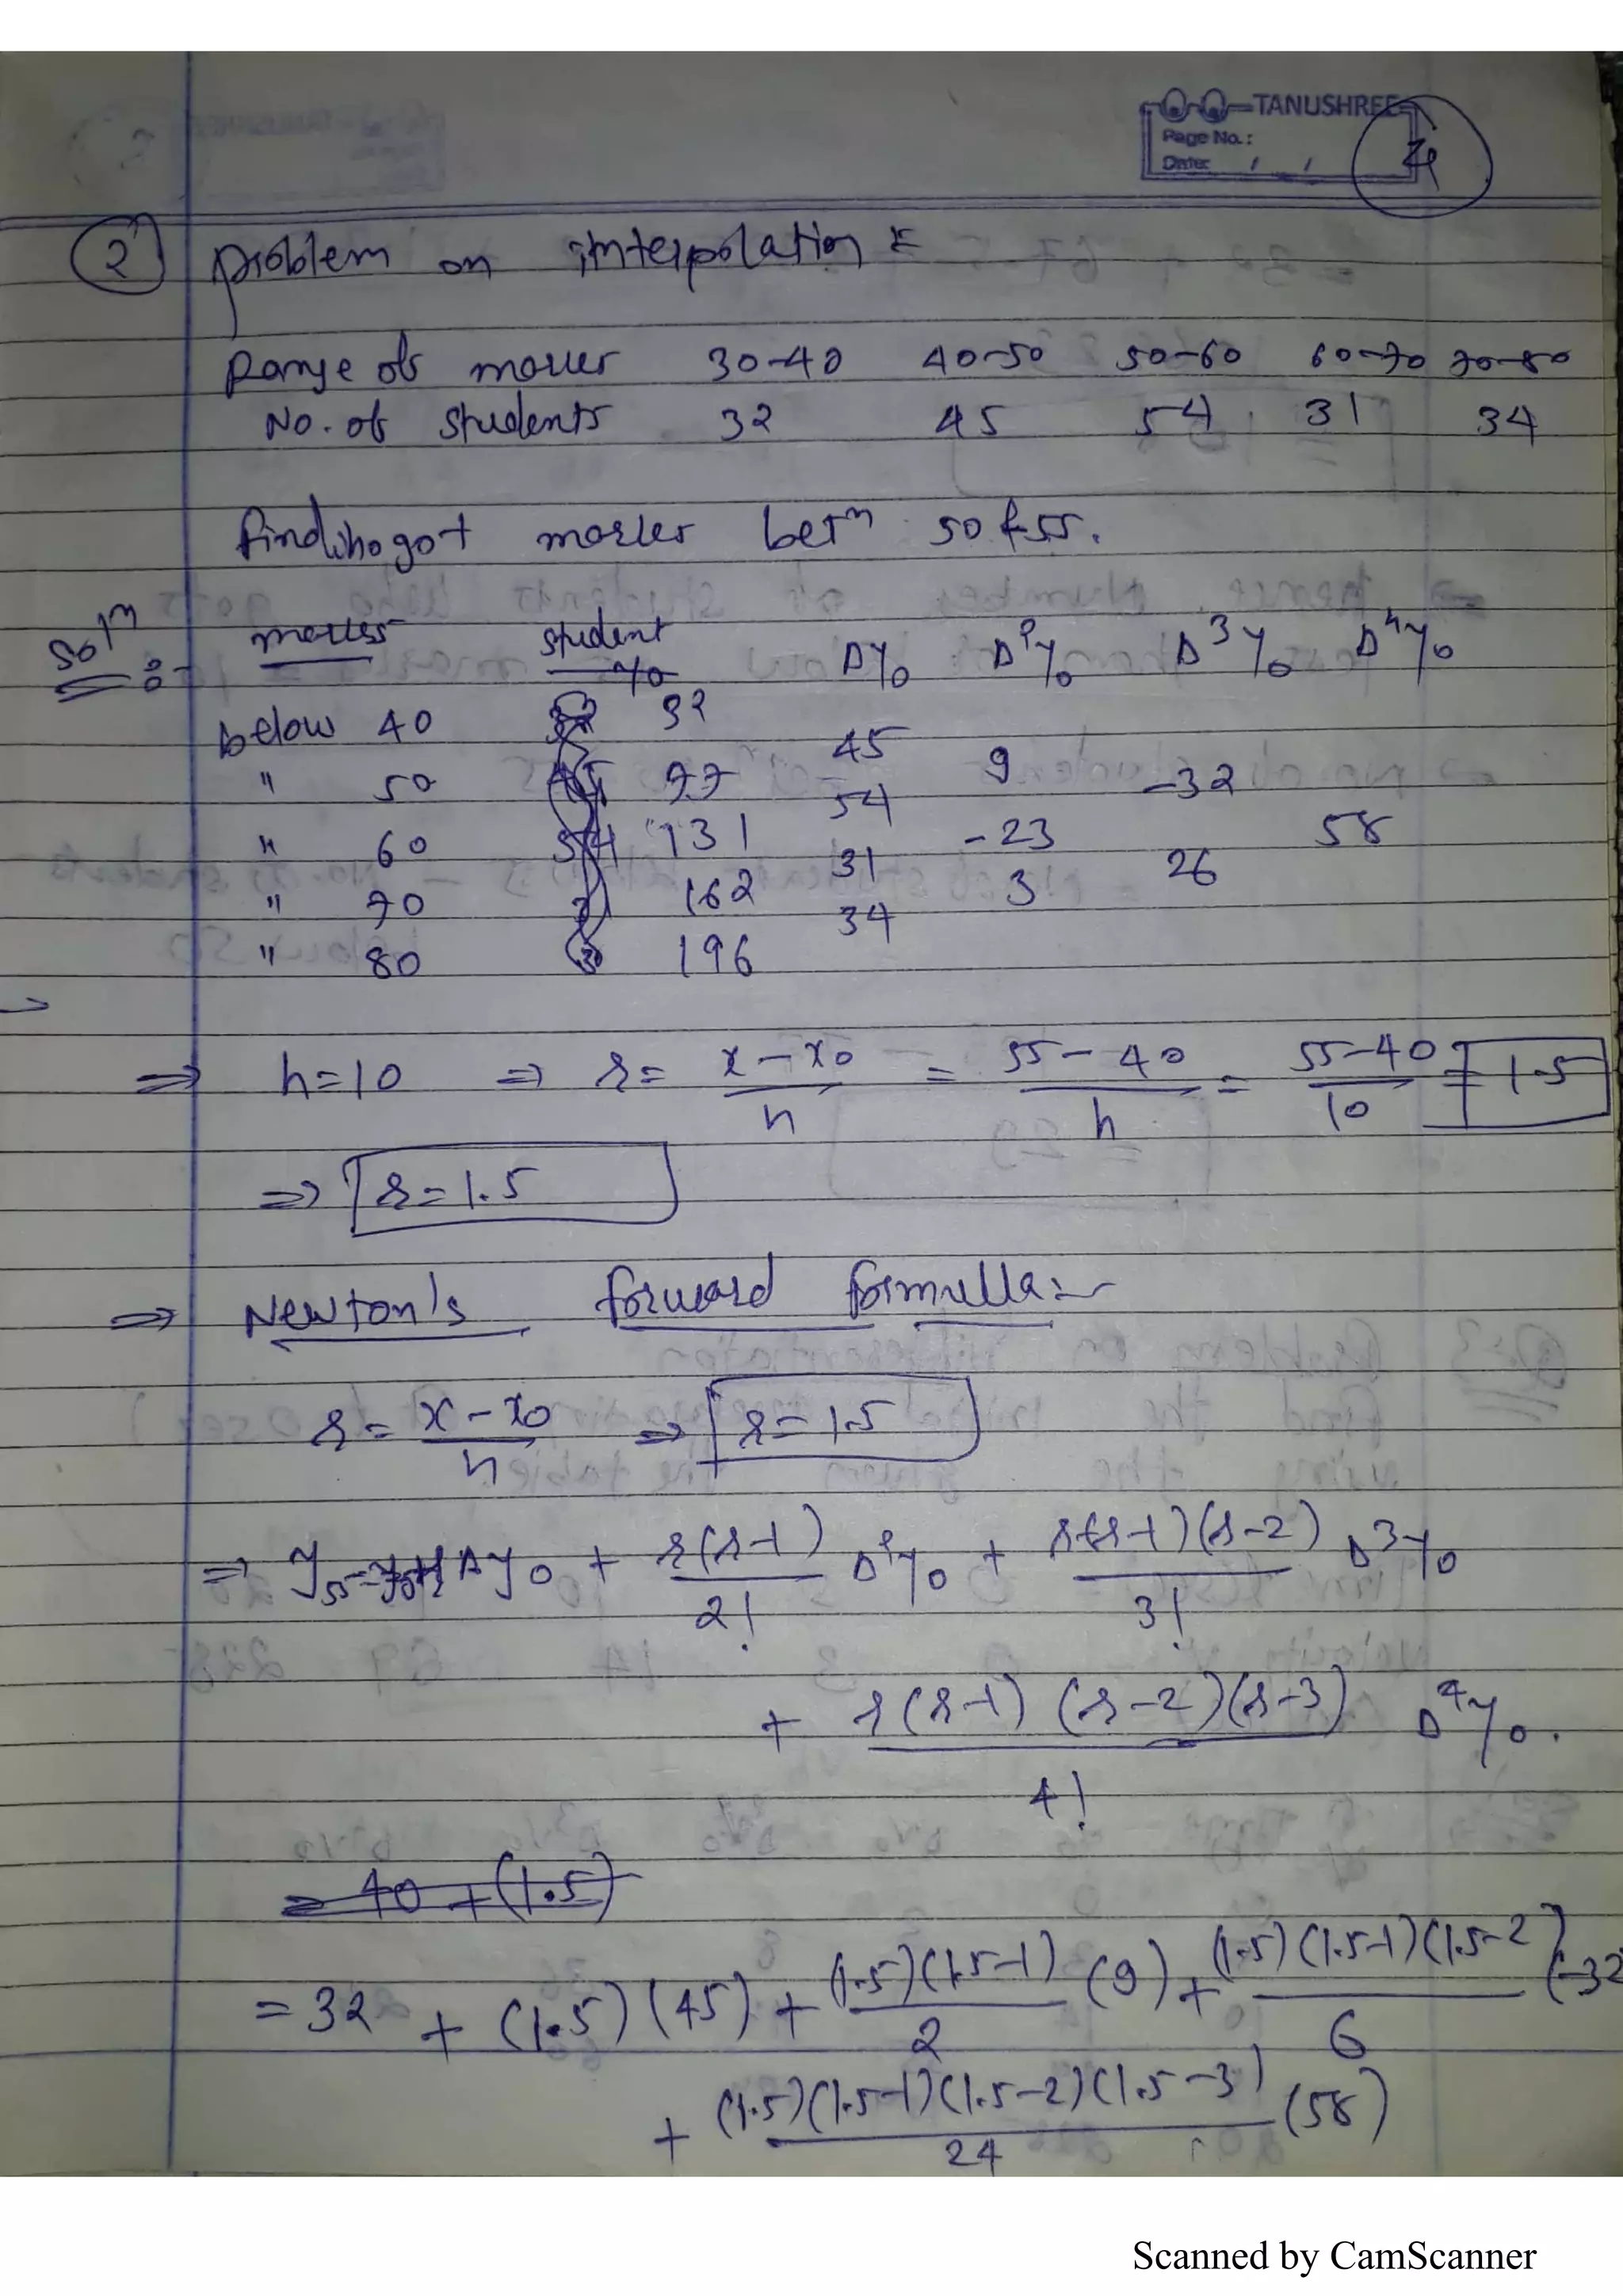 TANUSHREE
Page No.:
Date: / /
4
② Problem on interpolation :-
Range of marks 30-40 40-50 50-60 60-70 70-80
No. of students 32 45 54 31 34
find who got marks betn 50 & 55.
Soln :- marks student y₀ Δy₀ Δ²y₀ Δ³y₀ Δ⁴y₀
below 40 32
45
" 50 77 9
54 -32
" 60 131 -23 58
31 26
" 70 162 3
34
" 80 196
⇒ h=10 ⇒ r = (x-x₀)/h = (55-40)/h = (55-40)/10 = 1.5
⇒ r=1.5
⇒ Newton's forward formulla:-
r = (x-x₀)/h ⇒ r=1.5
⇒ y₅₅ = y₀+r Δy₀ + r(r-1)/2! Δ²y₀ + r(r-1)(r-2)/3! Δ³y₀
+ r(r-1)(r-2)(r-3)/4! Δ⁴y₀.
= 40 + (1.5)
= 32 + (1.5)(45) + (1.5)(1.5-1)/2 (9) + (1.5)(1.5-1)(1.5-2)/6 (-32
+ (1.5)(1.5-1)(1.5-2)(1.5-3)/24 (58)
Scanned by CamScanner